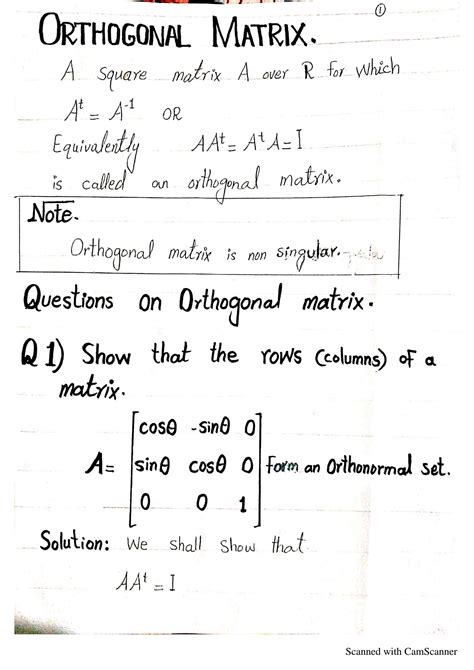 ①
ORTHOGONAL MATRIX.
A square matrix A over R for which
Aᵗ = A⁻¹ OR
Equivalently AAᵗ = AᵗA = I
is called an orthogonal matrix.
Note.
Orthogonal matrix is non singular.
Questions on Orthogonal matrix.
Q1) Show that the rows (columns) of a
matrix.
cosθ -sinθ 0
A= sinθ cosθ 0 form an Orthonormal set.
0 0 1
Solution: We shall show that
AAᵗ = I
Scanned with CamScanner